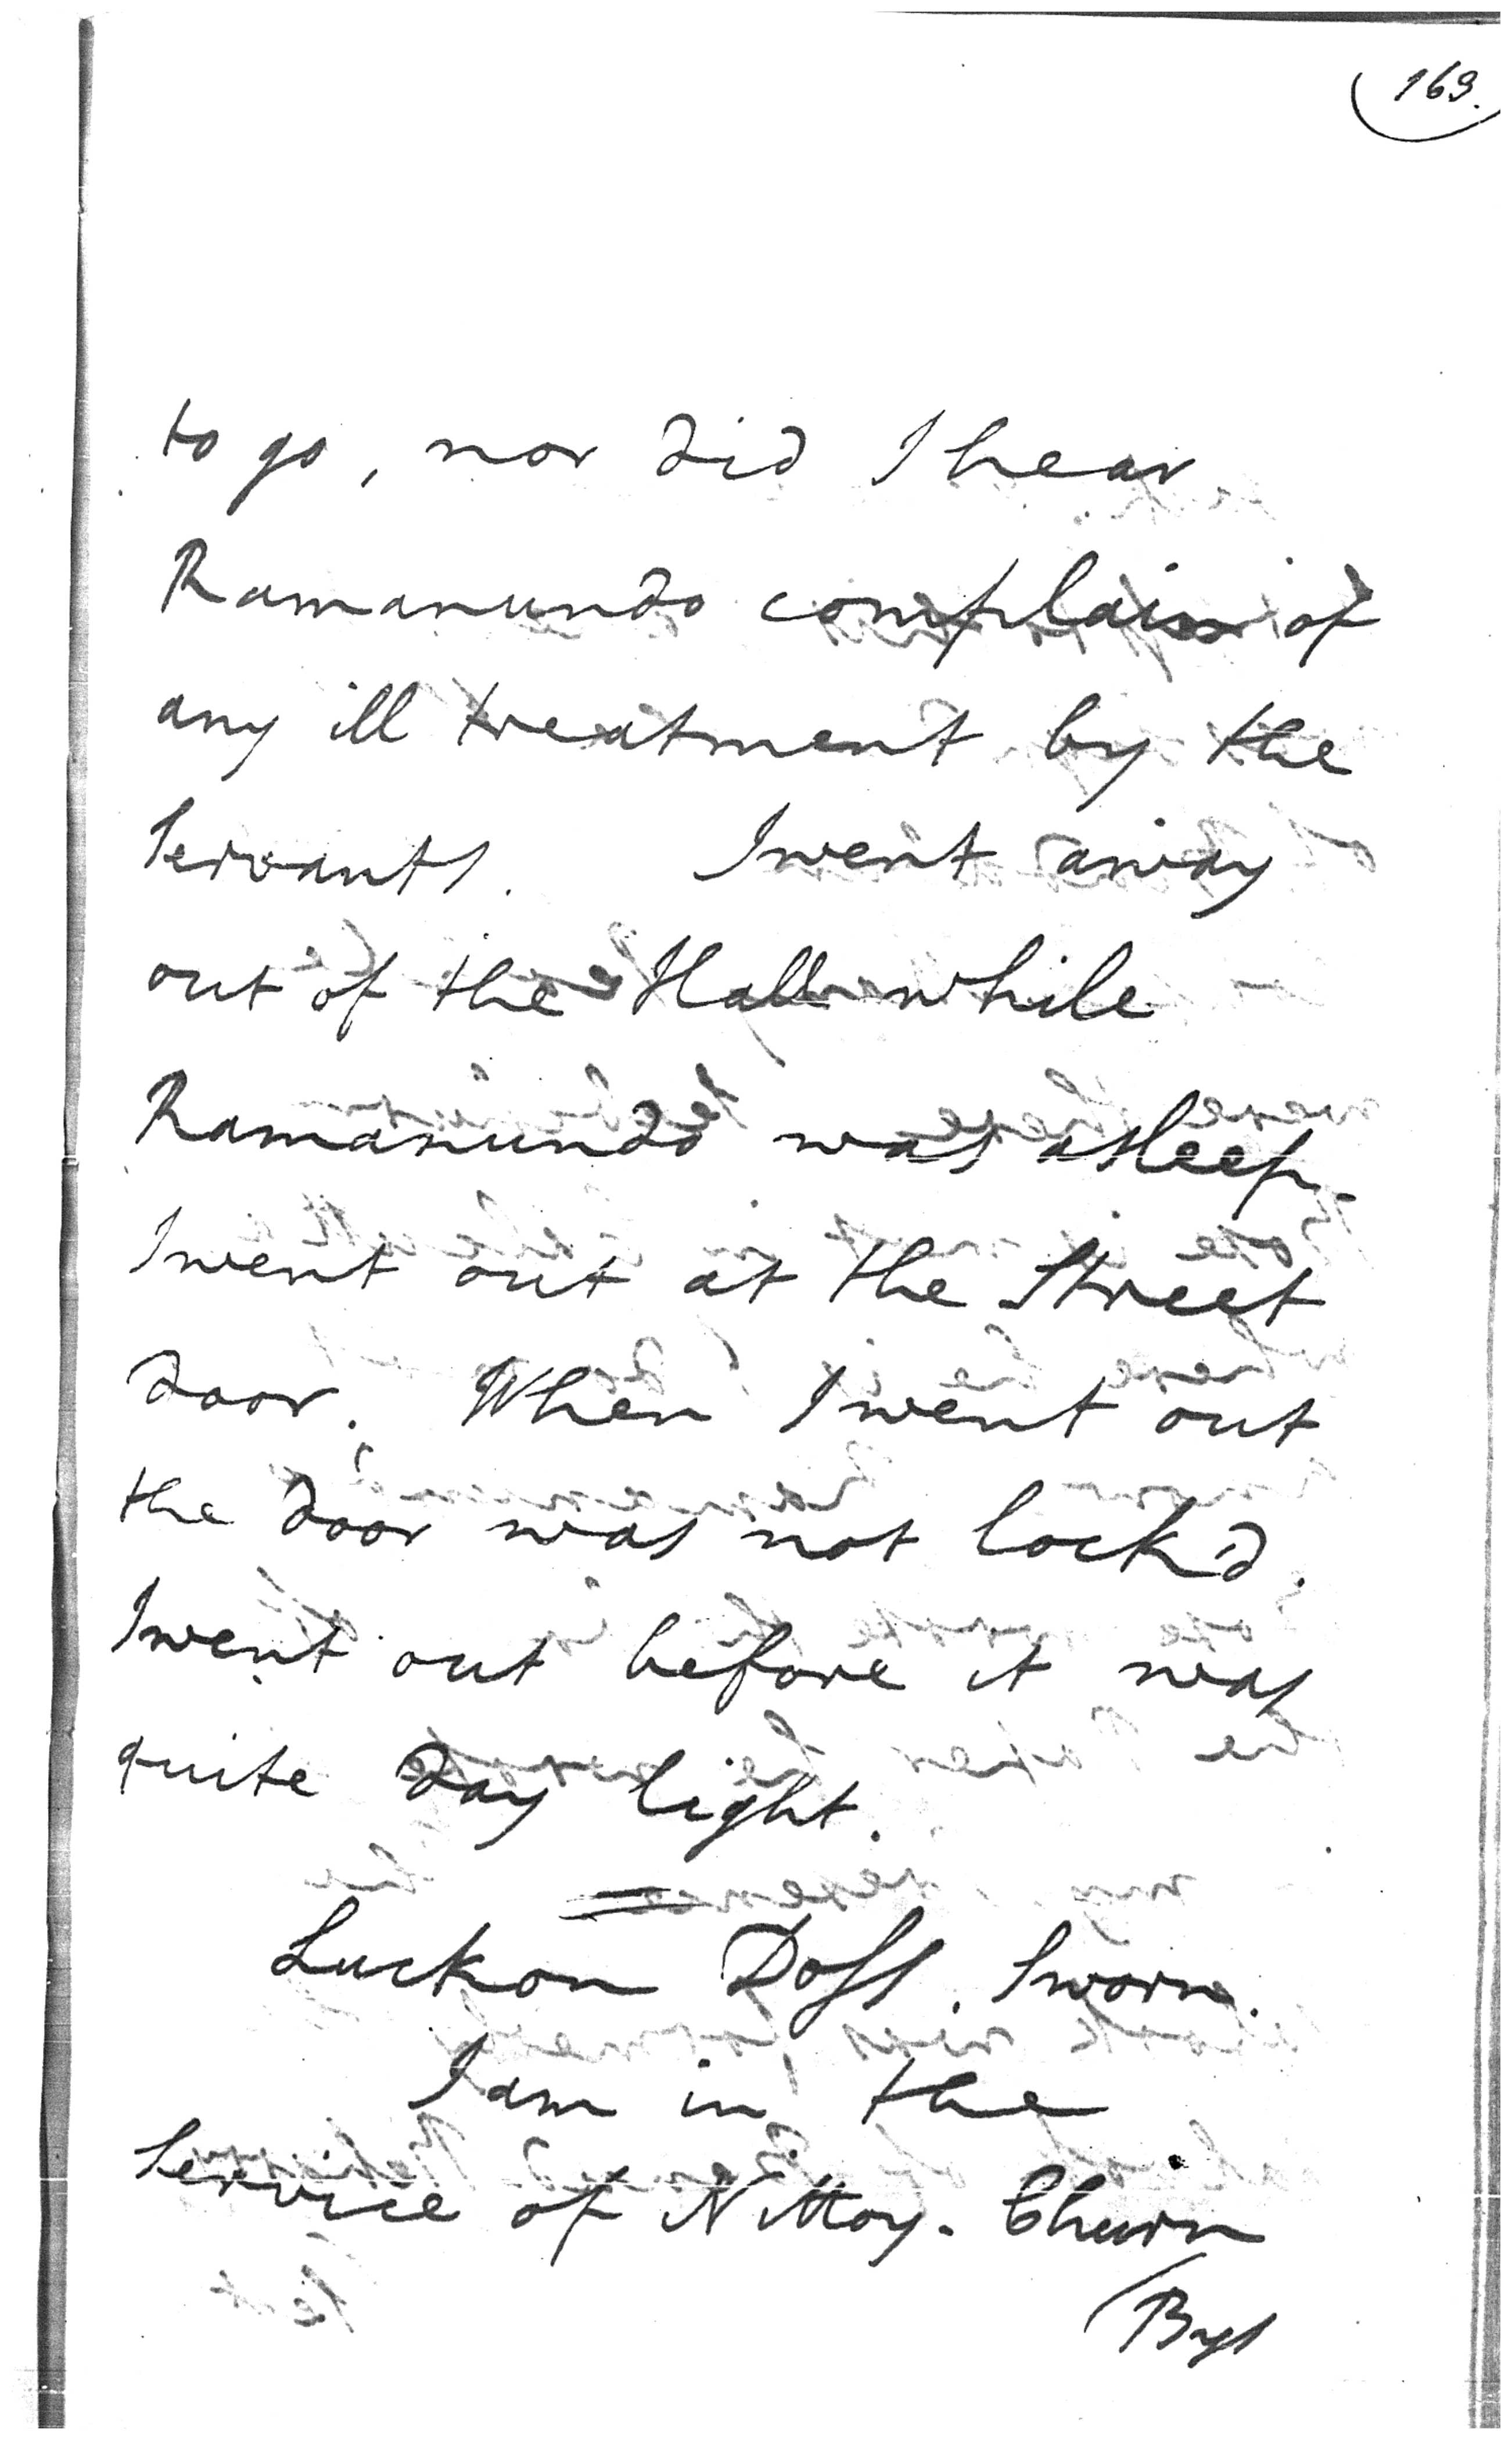 169.
to go, nor did I hear
Ramanundo complain of
any ill treatment by the
Servants. I went away
out of the Hall while
Ramanundo was asleep.
I went out at the Street
door. When I went out
the door was not lock'd.
I went out before it was
quite day light.
Luckon Doss. Sworn.
I am in the
Service of Nittoy. Churn
Bys